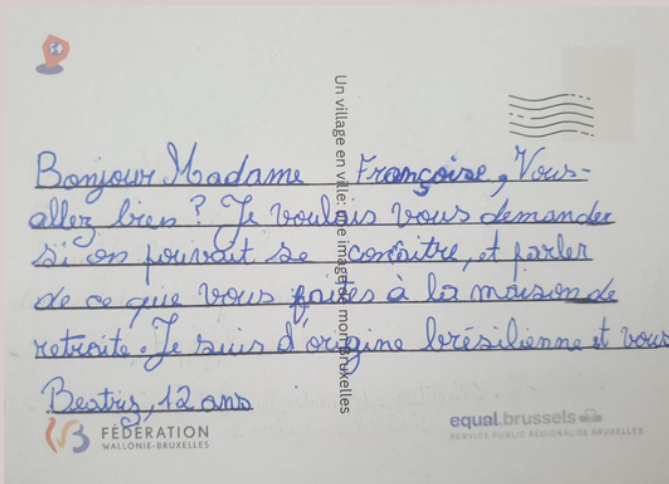 Un village en ville: une image de mon Bruxelles
Bonjour Madame Françoise, Vous-
allez bien ? Je voulais vous demander
si on pouvait se conaitre, et parler
de ce que vous faites à la maison de
retraite. Je suis d'origine brésilienne et vous
Beatriz, 12 ans
FÉDÉRATION
WALLONIE-BRUXELLES
equal.brussels
SERVICE PUBLIC RÉGIONAL DE BRUXELLES